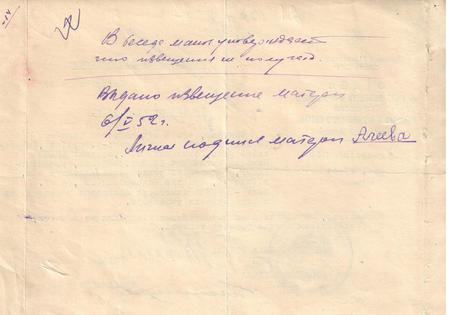 -14
В беседе мать утверждает
что извещения не получала.
Выдано извещение матери
6/V 52 г.
Личная подпись матери Агеева